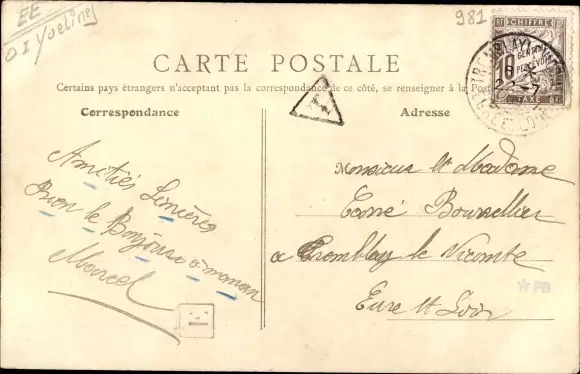 EE
01 Yvelines
981
CARTE POSTALE
Certains pays étrangers n'acceptant pas la correspondance de ce côté, se renseigner à la Poste
Correspondance
Adresse
RF CHIFFRE
10 CENTIMES
A PERCEVOIR
TAXE
Amitiés Sincères
Bien le Bonjour a maman
Marcel
Monsieur et Madame
Bourrellier
a Tremblay le Vicomte
Eure et Loir
PB